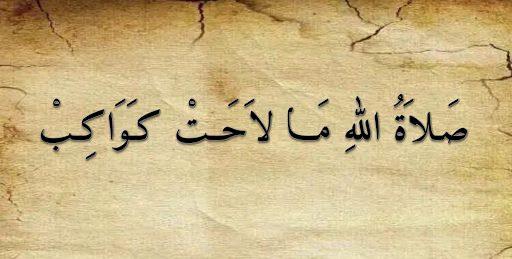 صَلاَةُ اللهِ مَـا لاَحَـتْ كَوَاكِبْ